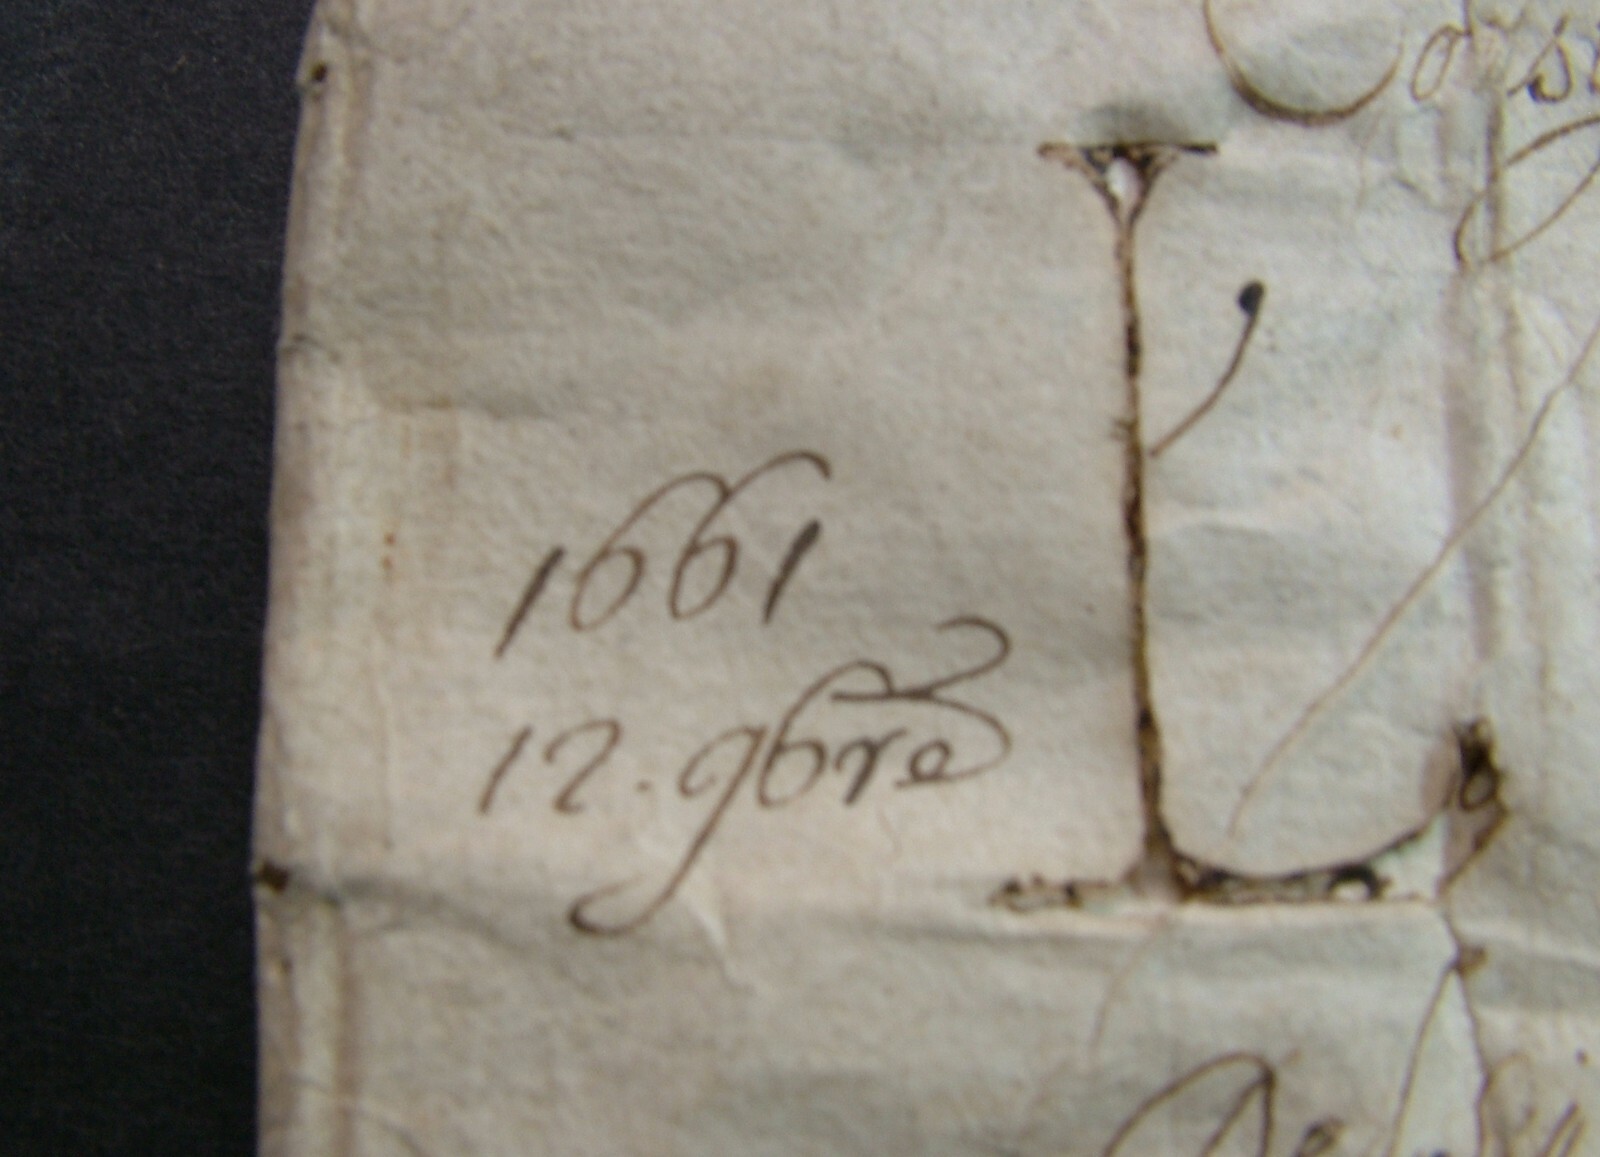 L
1661
12. 9bre